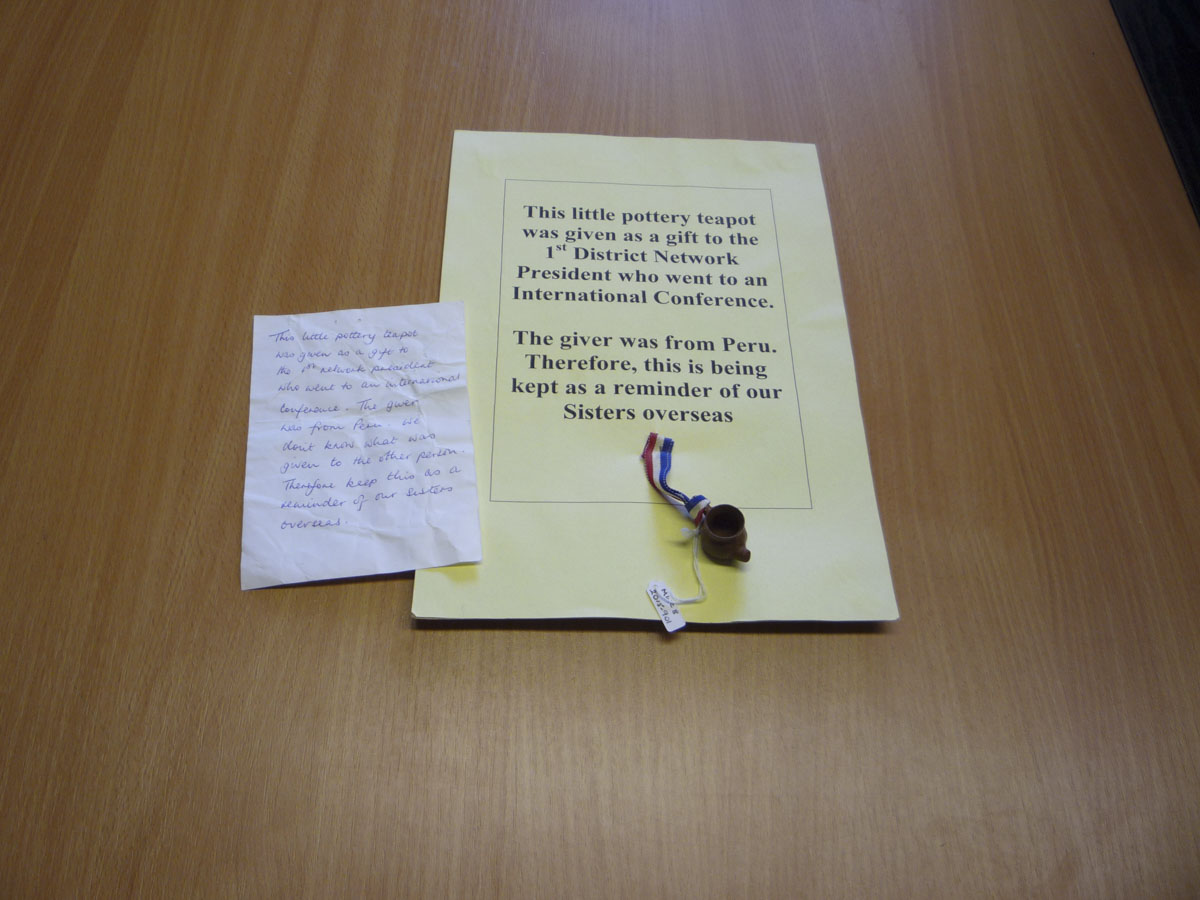 This little pottery teapot
was given as a gift to
the 1st network president
who went to an international
conference. The giver
was from Peru. We
dont know what was
given to the other person.
Therefore keep this as a
reminder of our sisters
overseas.
This little pottery teapot
was given as a gift to the
1st District Network
President who went to an
International Conference.
The giver was from Peru.
Therefore, this is being
kept as a reminder of our
Sisters overseas